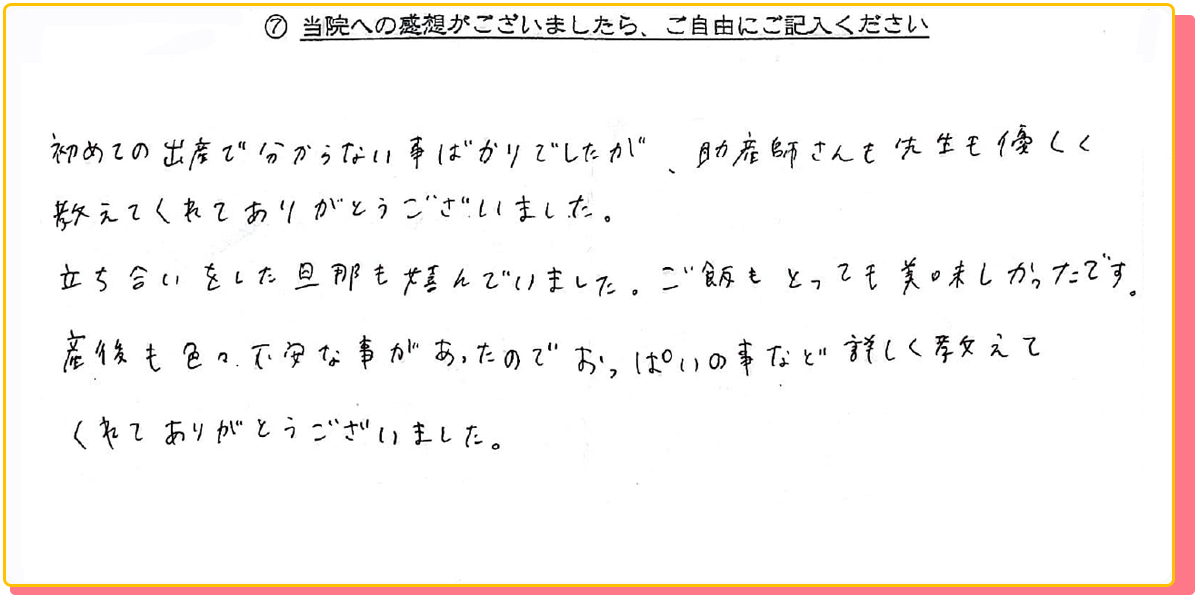 ⑦ 当院への感想がございましたら、ご自由にご記入ください
初めての出産で分からない事ばかりでしたが、助産師さんも先生も優しく
教えてくれてありがとうございました。
立ち合いをした旦那も嬉んでいました。ご飯もとっても美味しかったです。
産後も色々不安な事があったのでおっぱいの事など詳しく教えて
くれてありがとうございました。